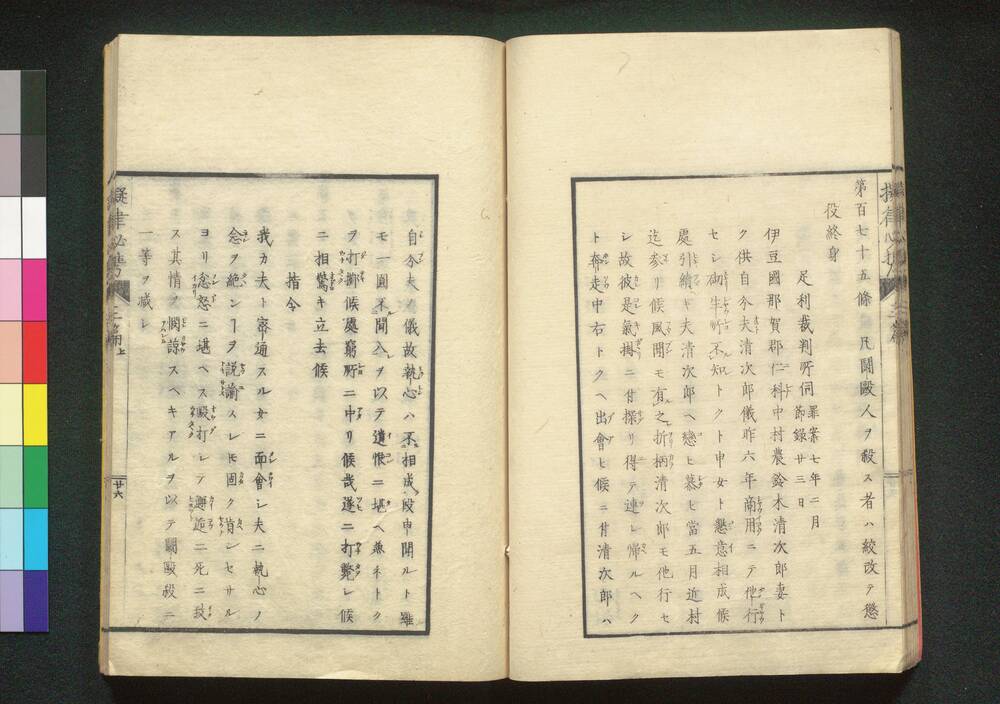 第百七十五條凡鬪毆人ヲ殺ス者ハ絞改テ懲
役終身
足利裁判所伺 罪案七年二月
節録廿三日
伊豆國那賀郡仁科中村農鈴木清次郎妻ト
ク供自分夫清次郎儀昨六年商用ニテ他行
セシ砌生所不知トクト申女ト懇意相成候
處引續キ夫清次郎ヘ戀ヒ慕ヒ當五月近村
迄參リ候風聞モ有之折柄清次郎モ他行セ
シ故彼是氣掛ニ付探リ得テ連レ帰ルヘク
ト奔走中右トクヘ出會ヒ候ニ付清次郎ハ
自分夫ノ儀故執心ハ不相成段申聞ルト雖
モ一圓不聞入ヲ以テ遺恨ニ堪ヘ兼ネトク
ヲ打擲候處窮所ニ中リ候哉遂ニ打斃レ候
ニ相驚キ立去候
指令
我カ夫ト密通スル女ニ面會シ夫ニ執心ノ
念ヲ絶ンヿヲ説諭スレ𪜈固ク肯ンセサル
ヨリ忿怒ニ堪ヘス毆打シテ邂逅ニ死ニ致
ス其情ヲ憫諒スヘキアルヲ以テ鬪毆殺ニ
一等ヲ減シ
擬律必携 二篇附上
廿六